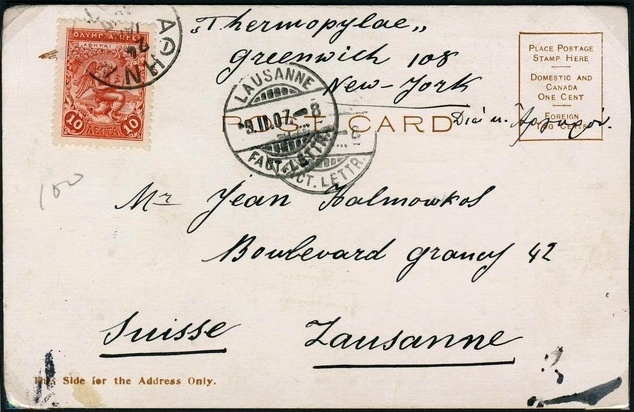 „Thermopylae„
Greenwich 108
New-York
ΑΘΗΝ
ΟΛΥΜΠ
ΑΘΗΝΑΙ
10 ΛΕΠΤΑ 10
LAUSANNE
9.II.07.-8
FACT. LETTR.
-8
CT. LETTR.
POST CARD
PLACE POSTAGE
STAMP HERE
DOMESTIC AND
CANADA
ONE CENT
FOREIGN
TWO CENTS
Διὰ
100
Mr Jean Kalmowkos
Boulevard grancy 42
Suisse Lausanne
This Side for the Address Only.